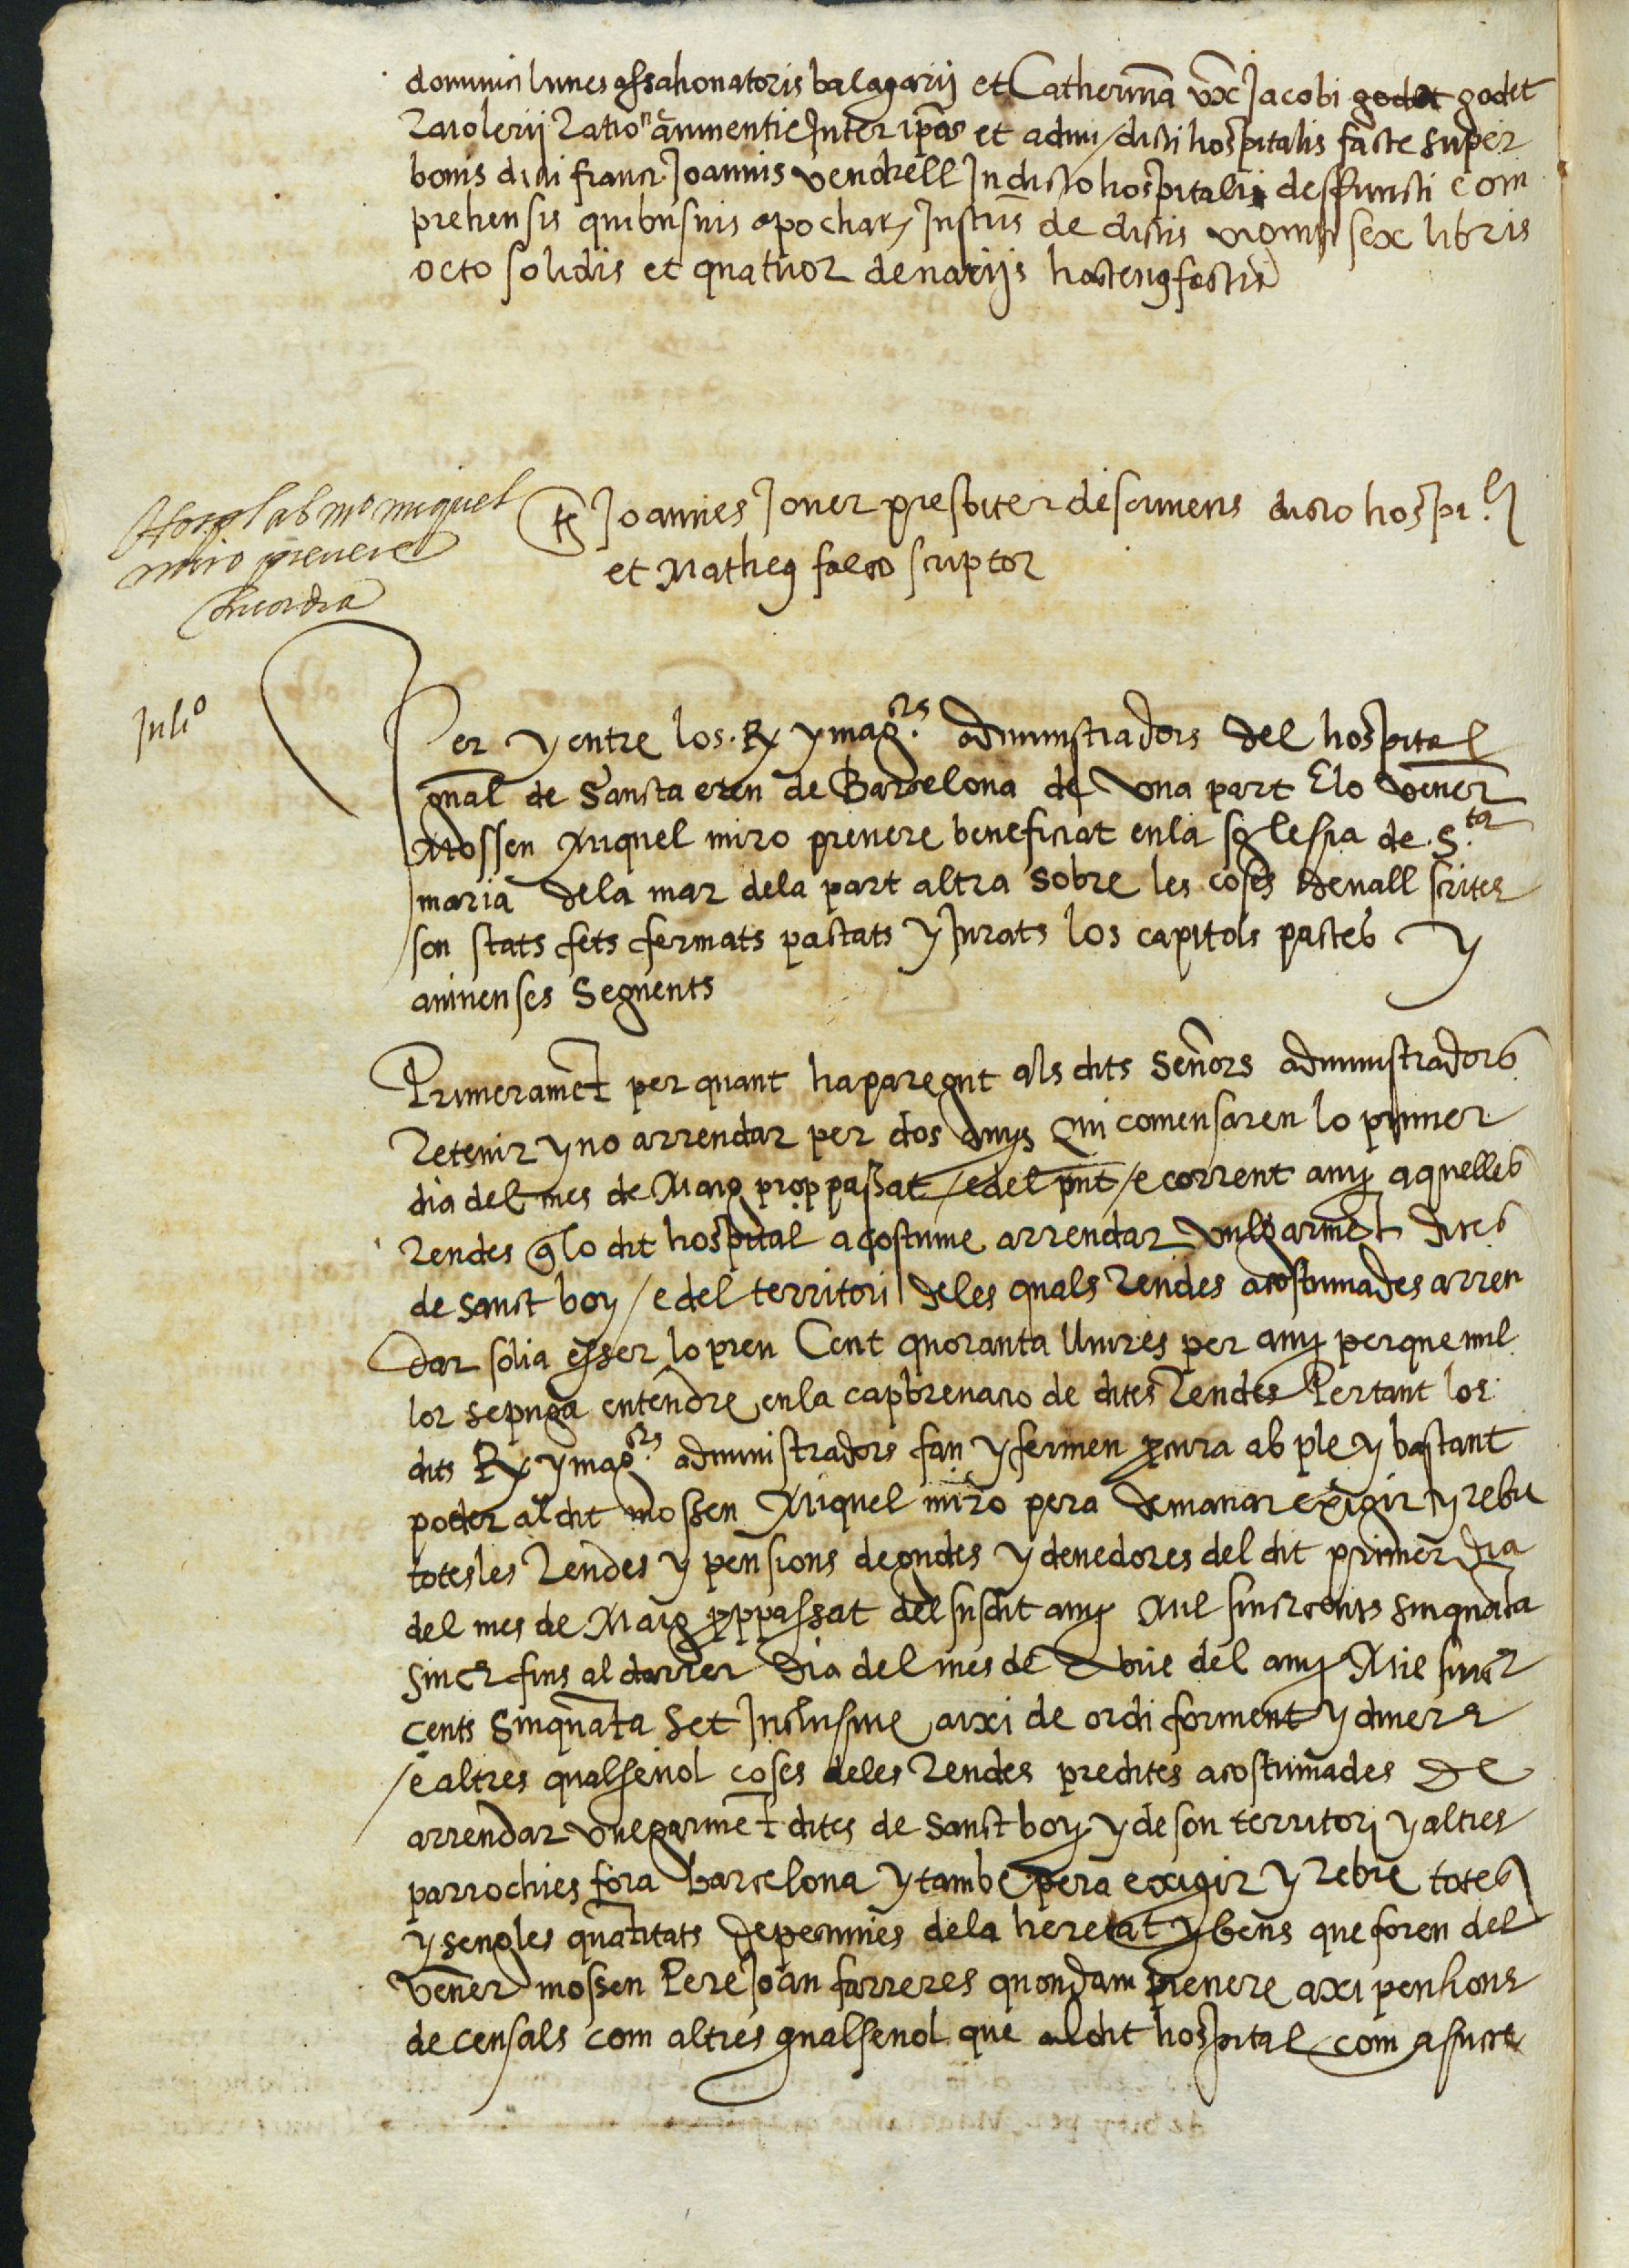 dominici lunes assahonatoris balagarij et Catherina ux Jacobi godet godet
Racolerij Ration avinentie Inter ipas et admi / dicti hospitalis facte super
bonis dicti franc Joannis vendrell In dicto hospitali deffuncti com
prehensis quibusvis apochar Instris de dictis viginti sex libris
octo solidis et quatuor denarijs hactenq factis
Hospl ab mo miquel
miro prevere
Concordia
ts Joannes Joner presbiter deserviens dicto hospi.li
et Matheq falco scriptor
Julio
Per y entre los . Rx y magrs . administradors del hospital
gnal de Sancta creu de Barcelona de una part E lo vener
Mossen Miquel miro prevere beneficiat en la sglesia de . Sta
maria de la mar de la part altra sobre les coses devall scrites
son stats fets fermats pactats y Jurats los capitols pactes y
avinenses seguents
Primeramet per quant ha paregut als dits señors administradors
retenir y no arrendar per dos anys qui comensaren lo primer
dia del mes de Maig prop passat / e del pnt / e corrent any aquelles
rendes q lo dit hospital acostume arrendar vulgarmet dites
de sanct boy / e del territori de les quals rendes acostumades arren
dar solia esser lo preu Cent quoranta lliures per any perque mil
lor se puga entendre en la capbrevacio de dites rendes Per tant los
dits Rx y magrs . administradors fan y fermen pcura ab ple y bastant
poder al dit mossen Miquel miro pera demanar exigir y rebre
totes les rendes y pensions degudes y devedores del dit primer dia
del mes de Maig pppassat del susdit any Mil sinch cents sinquata
sinch fins al darrer dia del mes de Abril del any Mil sinch
cents sinquata set Inclusive axi de ordi forment y diners
/ e altres qualsevol coses de les rendes predites acostumades de
arrendar vulgarmet dites de sanct boy y de son territori y altres
parrochies fora barcelona y tambe pera exigir y rebre totes
y sengles quatitats de pecunies de la heretat y bens que foren del
vener mossen Pere Joan farreres quondam prevere axi pensions
de censals com altres qualsevol que al dit hospital com a succe